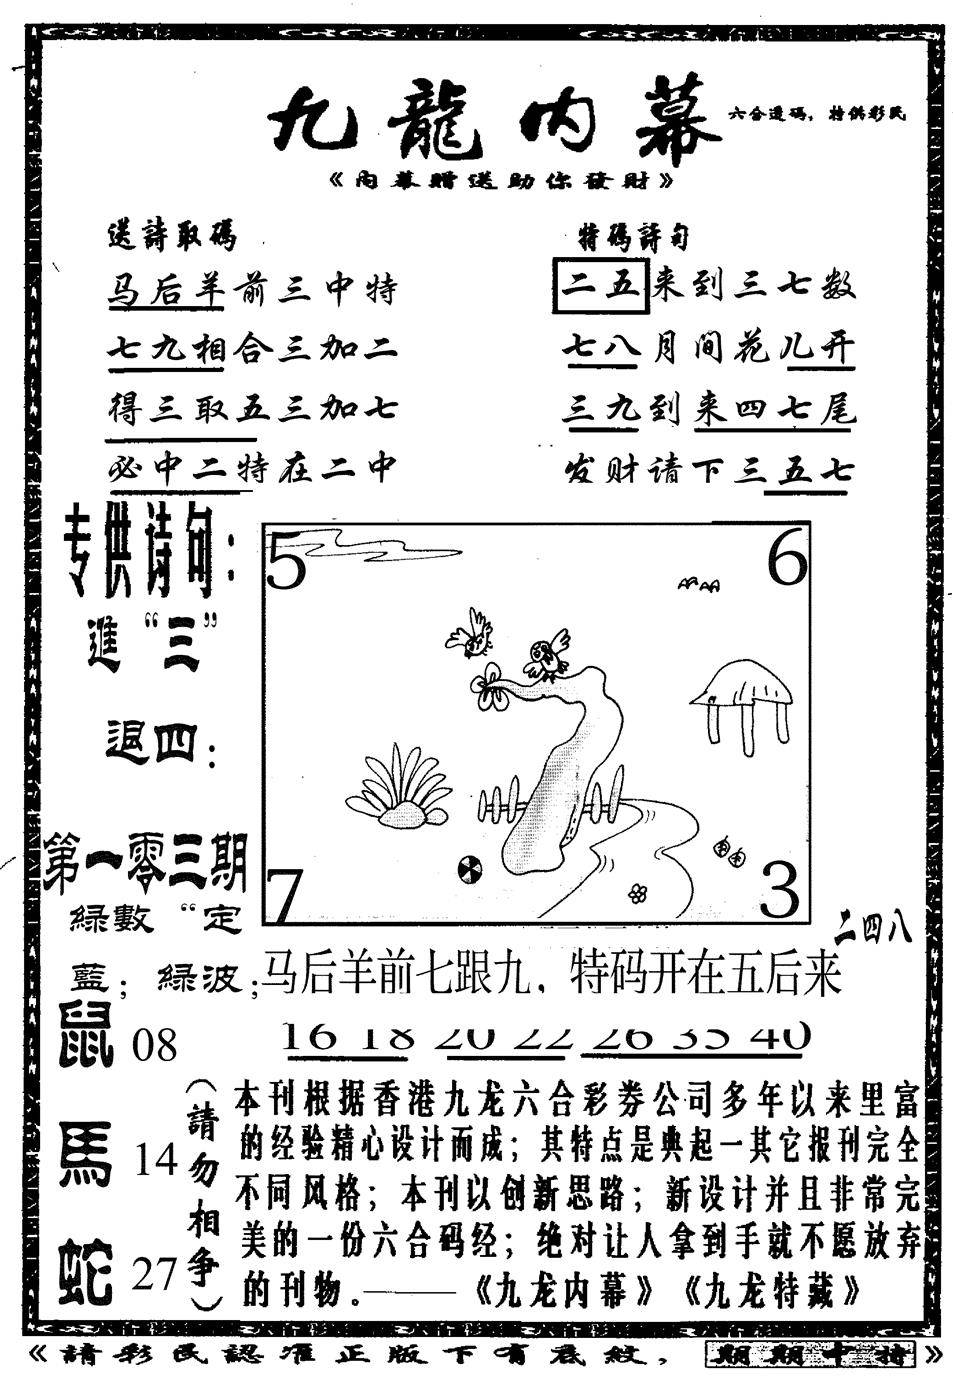 九龍内幕
六合透码，特供彩民
《内幕赠送助你發財》
送詩取碼
马后羊前三中特
七九相合三加二
得三取五三加七
必中二特在二中
特碼詩句
二五来到三七数
七八月间花儿开
三九到来四七尾
发财请下三五七
专供诗句：
進“三”
退四：
第一零三期
綠數“定
藍；綠波；
鼠 08
馬 14
蛇 27
（請勿相争）
5
6
7
3
二四八
马后羊前七跟九，特码开在五后来
16 18 20 22 26 35 40
本刊根据香港九龙六合彩券公司多年以来里富
的经验精心设计而成；其特点是典起一其它报刊完全
不同风格；本刊以创新思路；新设计并且非常完
美的一份六合码经；绝对让人拿到手就不愿放弃
的刊物。——《九龙内幕》《九龙特藏》
《請彩民認准正版下有底紋，期期中特》